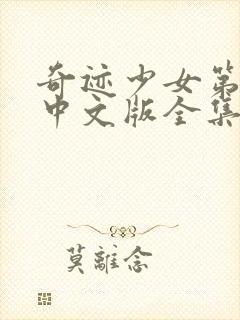 奇迹少女第
中文版全集
莫離念